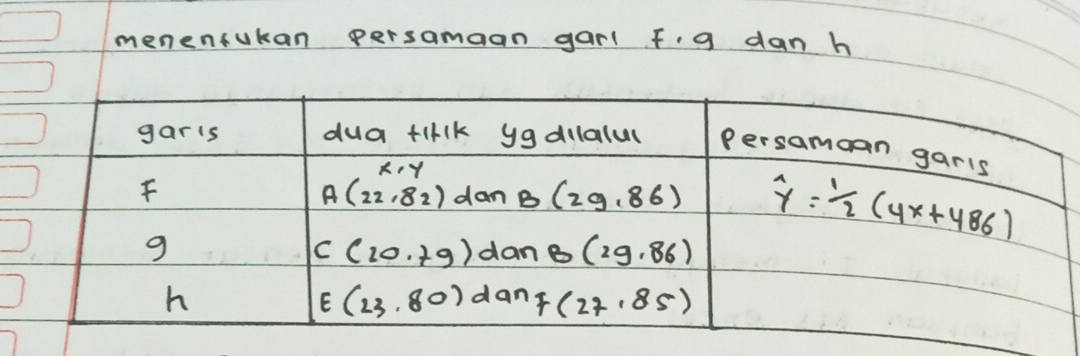 menentukan persamaan gari f, g dan h
garis dua titik yg dilalui Persamaan garis
x, y
f A (22,82) dan B (29,86) ŷ = 1/2 (4x+486)
g C (20,79) dan B (29,86)
h E (23,80) dan F (27,85)